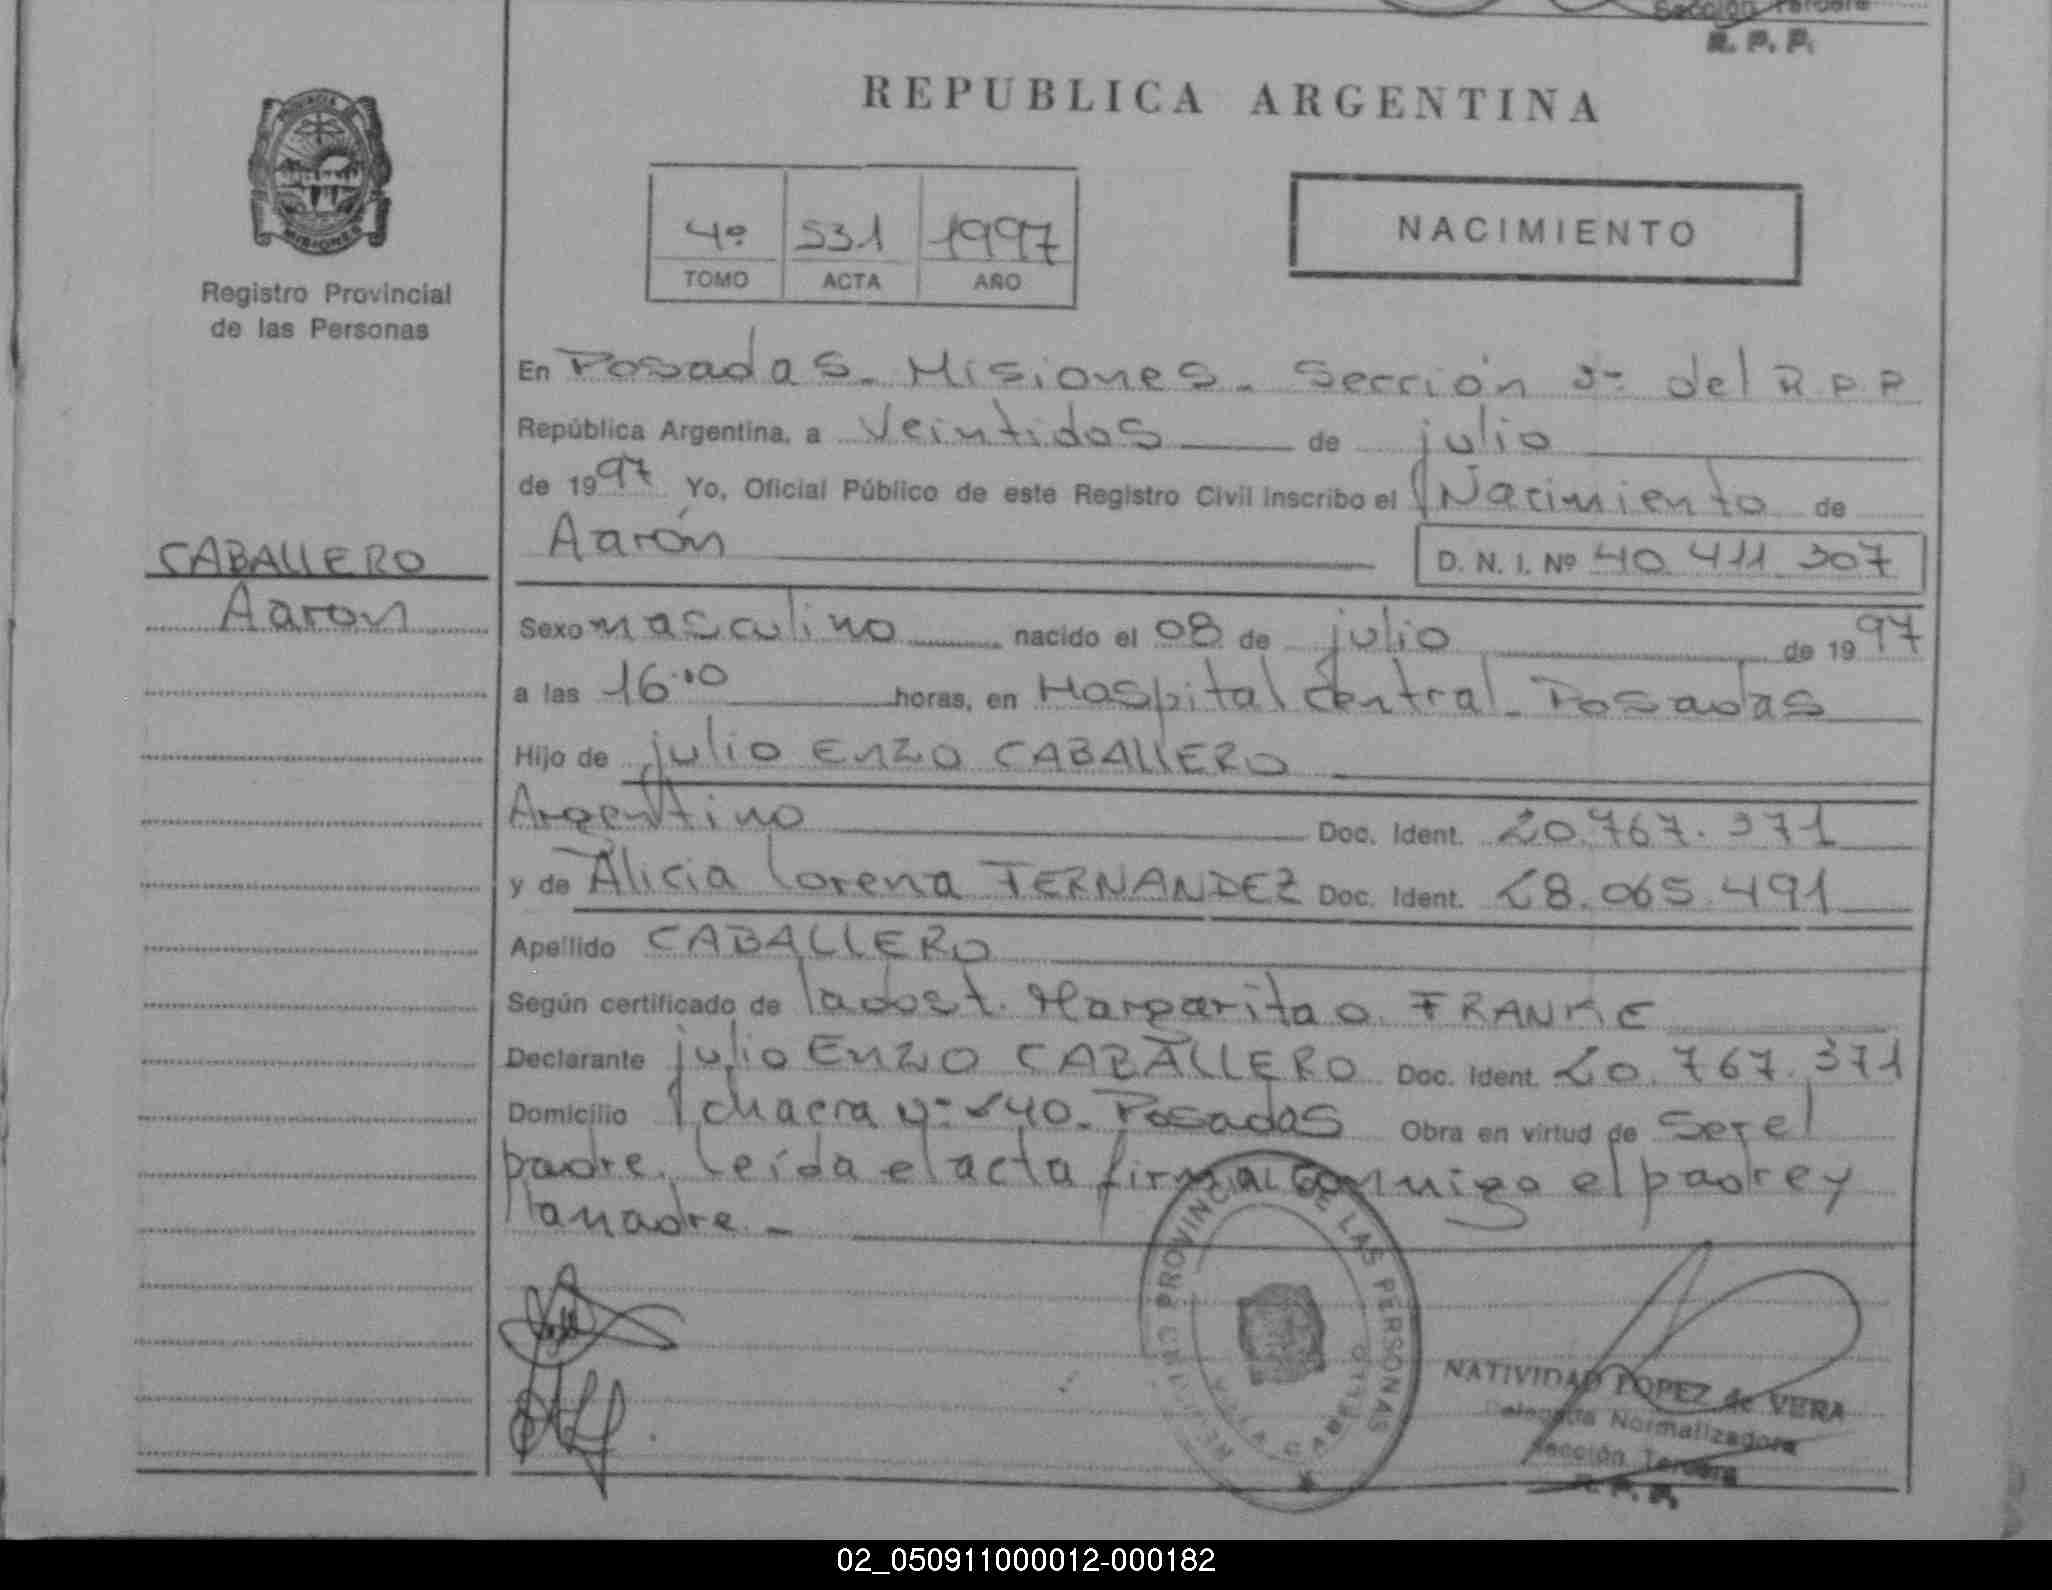 Sección Tercera
R. P. P.
REPUBLICA ARGENTINA
4º 531 1997
TOMO ACTA AÑO
NACIMIENTO
MISIONES
Registro Provincial
de las Personas
En Posadas - Misiones - Sección 3ª del R.P.P
República Argentina, a Veintidos de julio
de 1997 Yo, Oficial Público de este Registro Civil inscribo el Nacimiento de
CABALLERO
Aarón
D. N. I. Nº 40 411 307
Aaron
Sexo masculino nacido el 08 de julio de 1997
a las 16:10 horas, en Hospital Central - Posadas
Hijo de julio Enzo CABALLERO
Argentino Doc. Ident. 20.767.371
y de Alicia Lorena FERNANDEZ Doc. Ident. 28.065.491
Apellido CABALLERO
Según certificado de la obst. Margarita O. FRANKE
Declarante julio Enzo CABALLERO Doc. Ident. 20.767.371
Domicilio chacra nº 240. Posadas Obra en virtud de Ser el
padre. Leída el acta firmal conmigo el padre y
la madre. -
PROVINCIAL DE LAS PERSONAS
NATIVIDAD LOPEZ de VERA
Delegada Normalizadora
Sección Tercera
R. P. P.
02_050911000012-000182